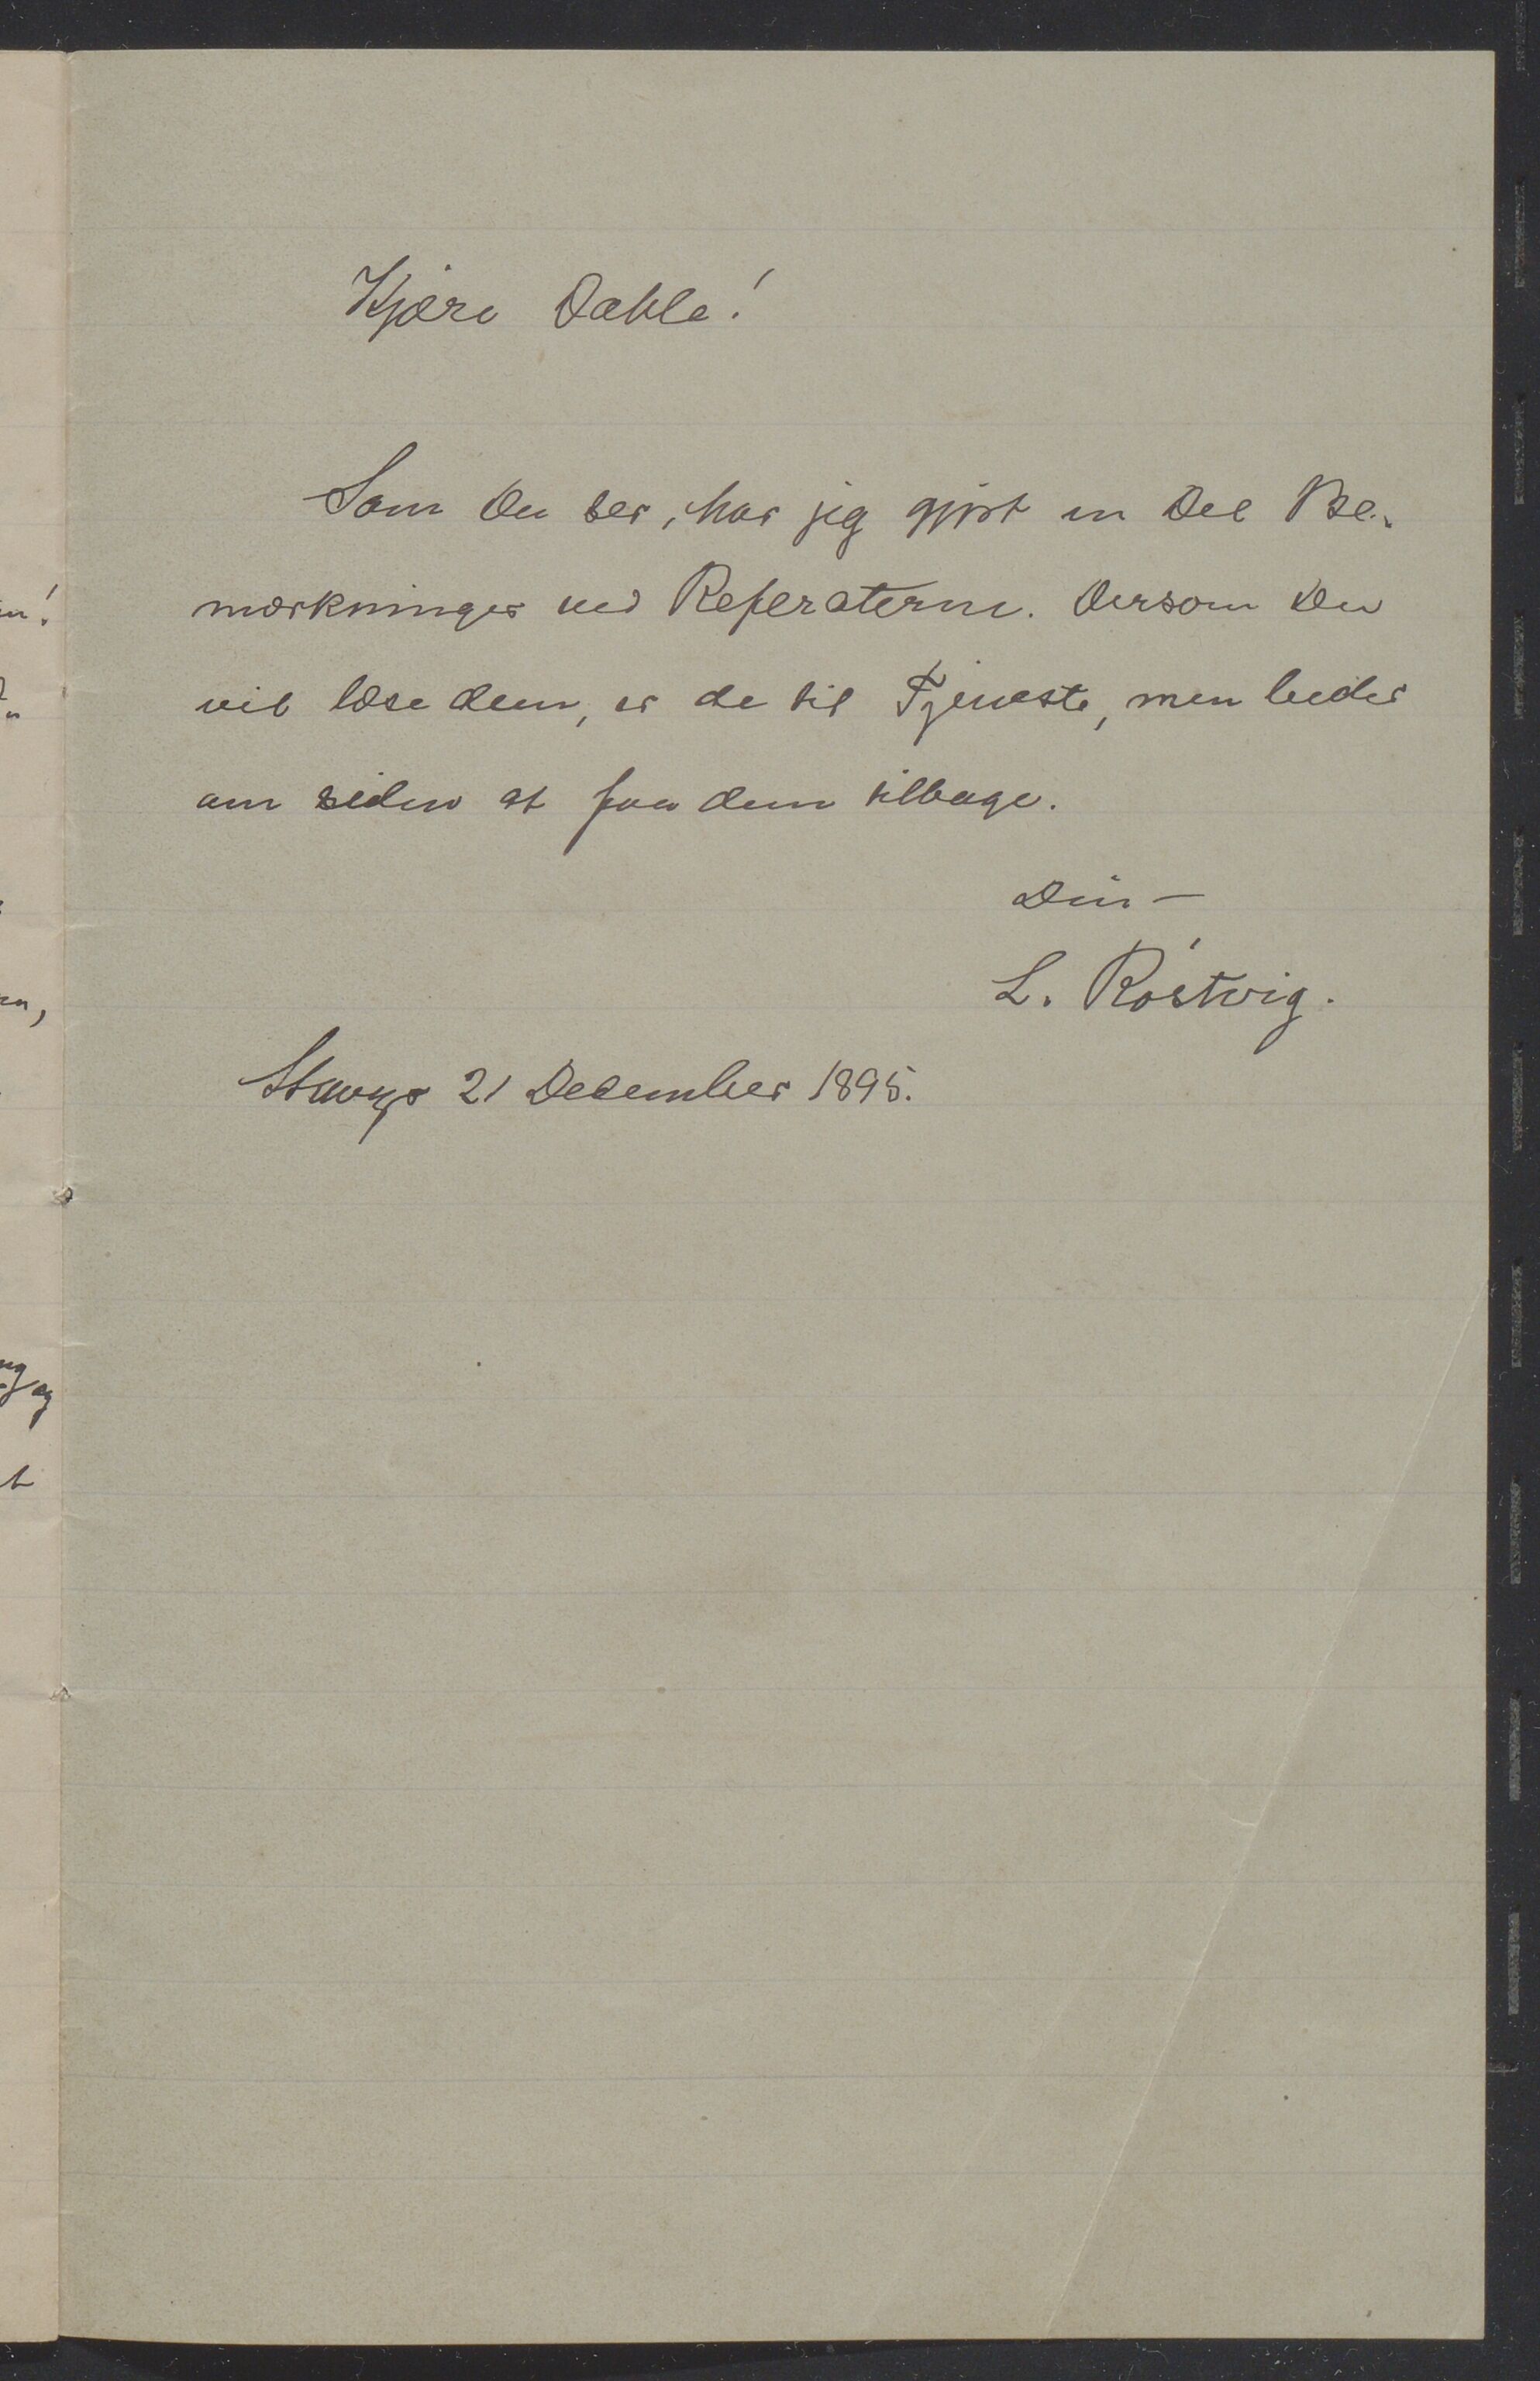 Kjære Dahle!
Som Du ser, har jeg gjort en Del Be-
mærkninger ved Referaterne. Dersom Du
vil læse dem, er de til Tjeneste, men beder
om siden at faa dem tilbage.
Din –
L. Röstvig.
Stavgr 21 December 1895.